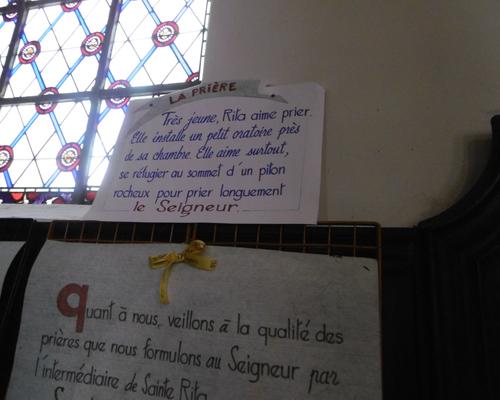 LA PRIÈRE
Très jeune, Rita aime prier.
Elle installe un petit oratoire près
de sa chambre. Elle aime surtout,
se réfugier au sommet d'un piton
rocheux pour prier longuement
le Seigneur.
quant à nous, veillons à la qualité des
prières que nous formulons au Seigneur par
l'intermédiaire de Sainte Rita